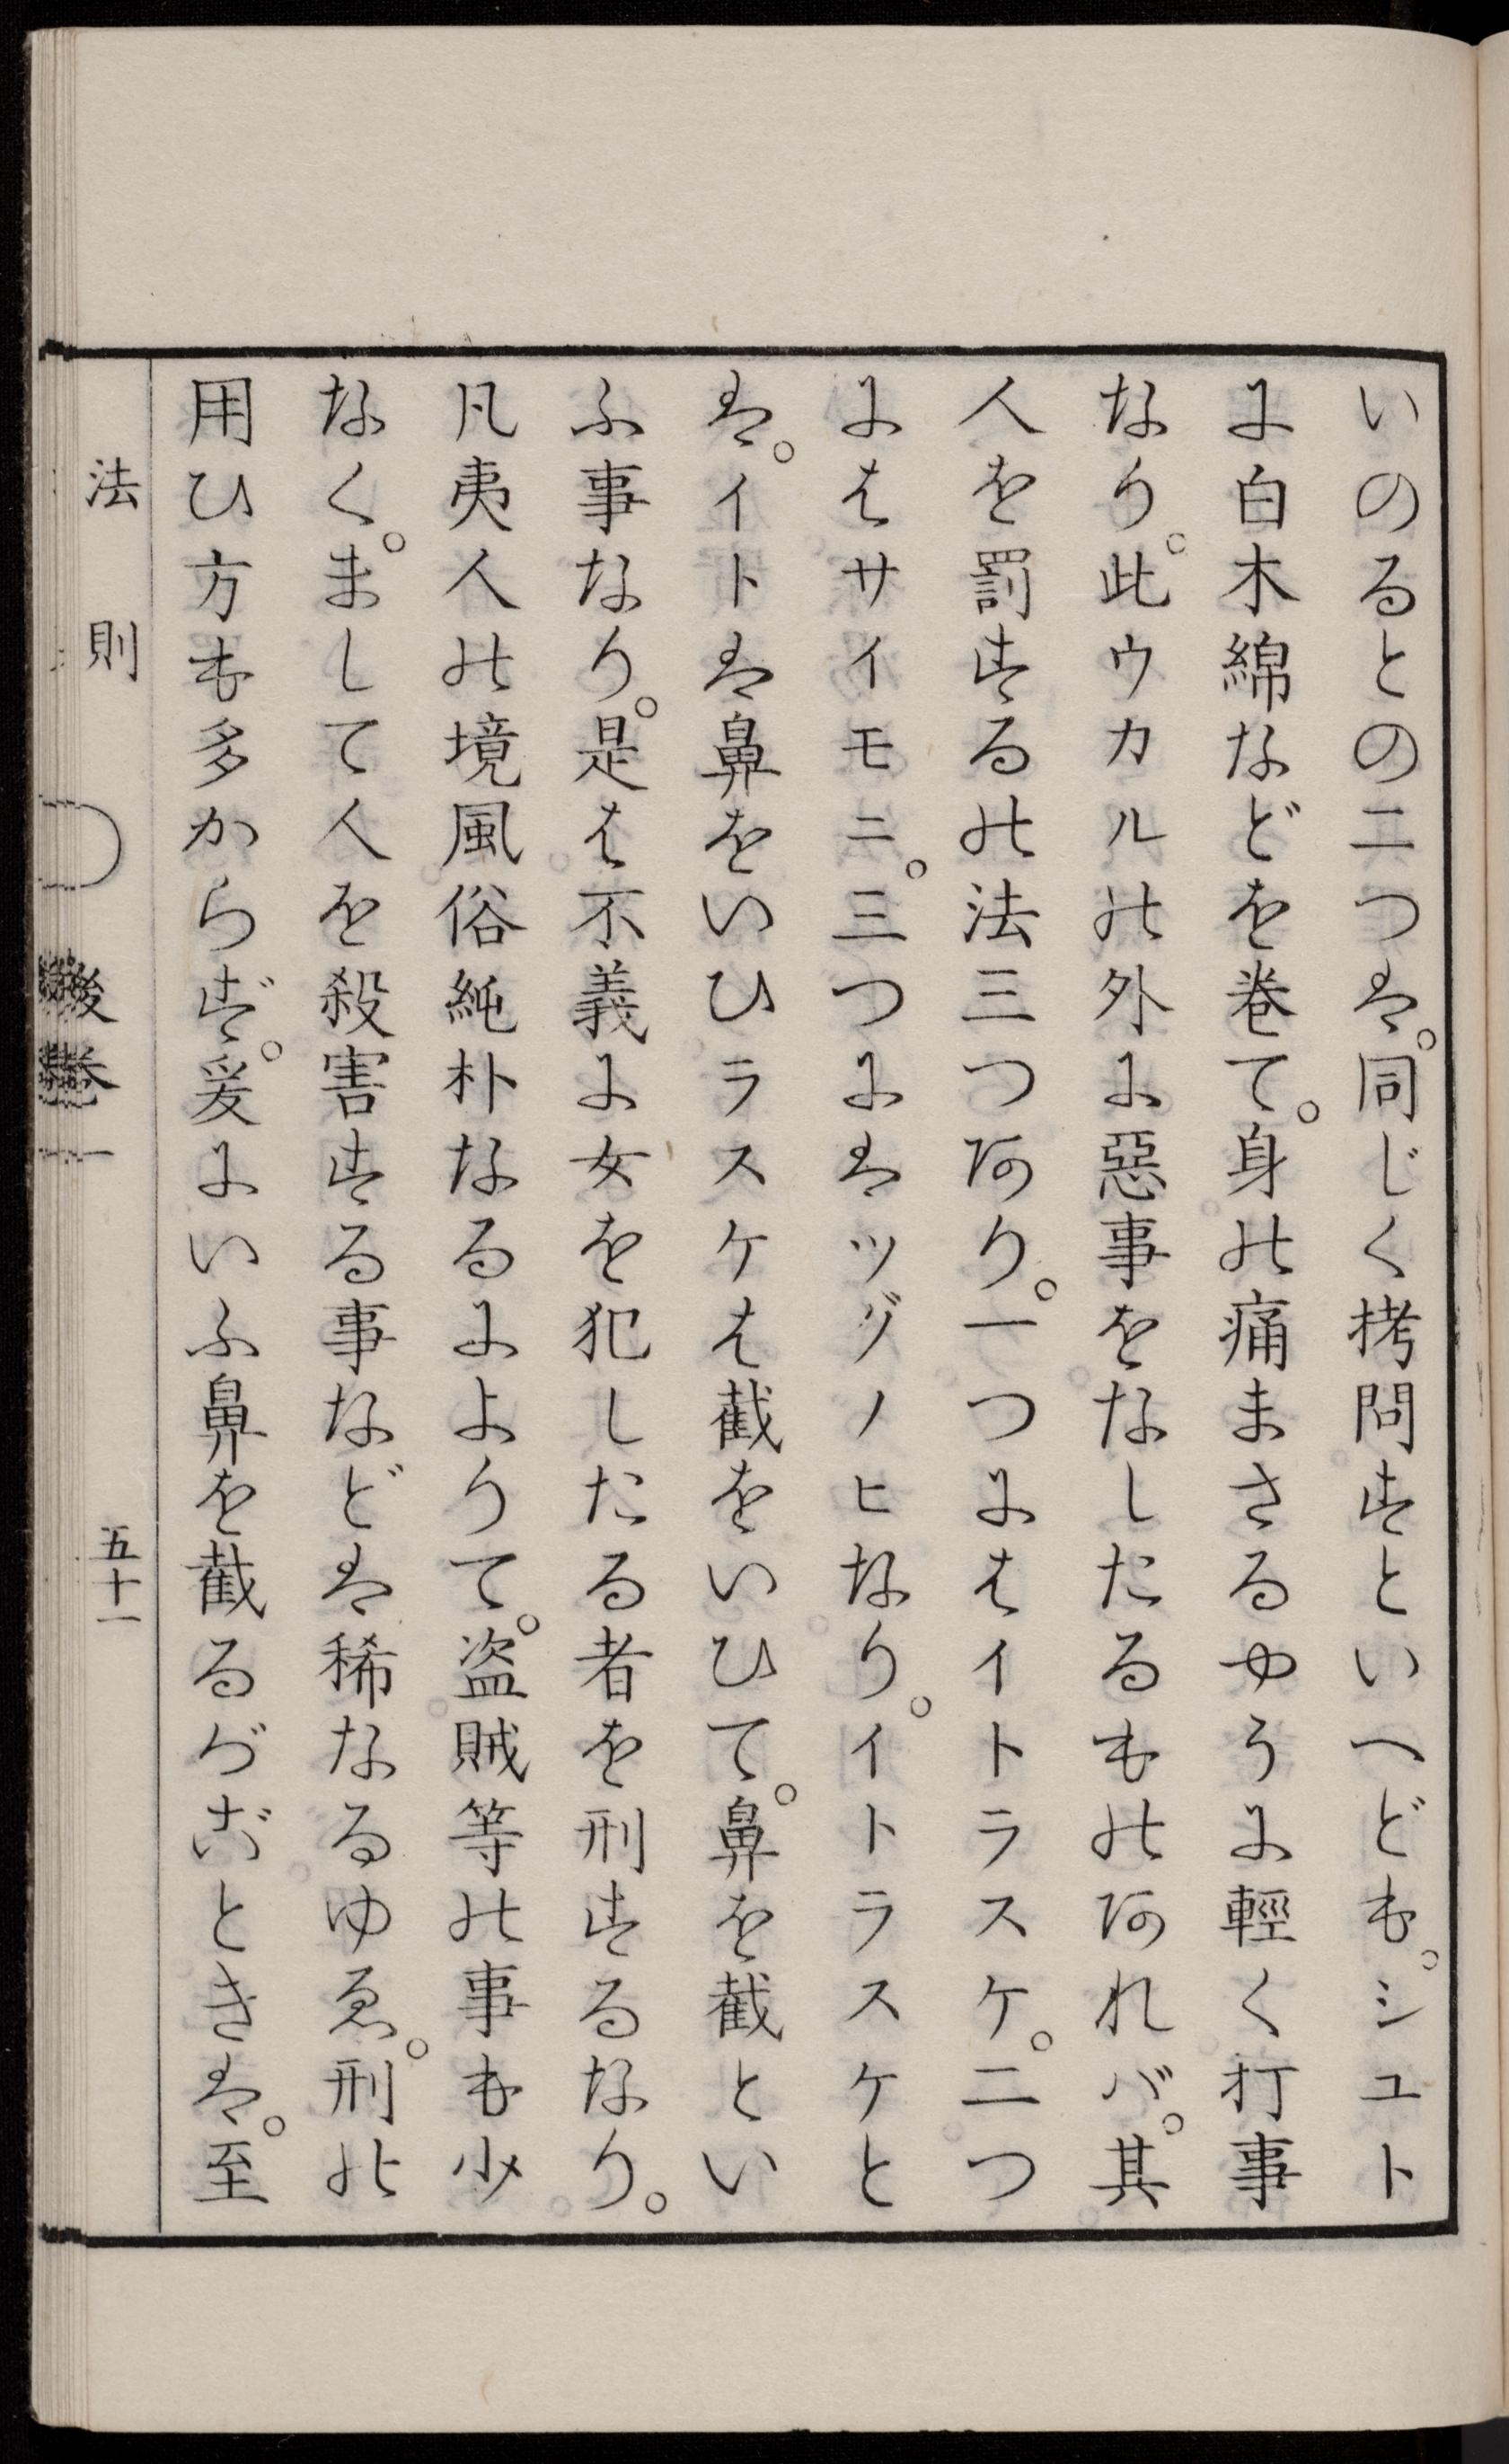 いのるとの二つは。同じく拷問すといへども。シユト
に白木綿などを巻て。身の痛まさるやうに輕く打事
なり。此ウカルの外に惡事をなしたるものあれバ。其
人を罰するの法三つあり。一つにはイトラスケ。二つ
にはサイモニ。三つにはツグノヒなり。イトラスケと
は。イトは鼻をいひラスケは截をいひて。鼻を截とい
ふ事なり。是は不義に女を犯したる者を刑するなり。
凡夷人の境風俗純朴なるによりて。盗賊等の事も少
なく。まして人を殺害する事などは稀なるゆゑ。刑の
用ひ方も多からず。爰にいふ鼻を截るがごときは。至
法則
後巻一
五十一